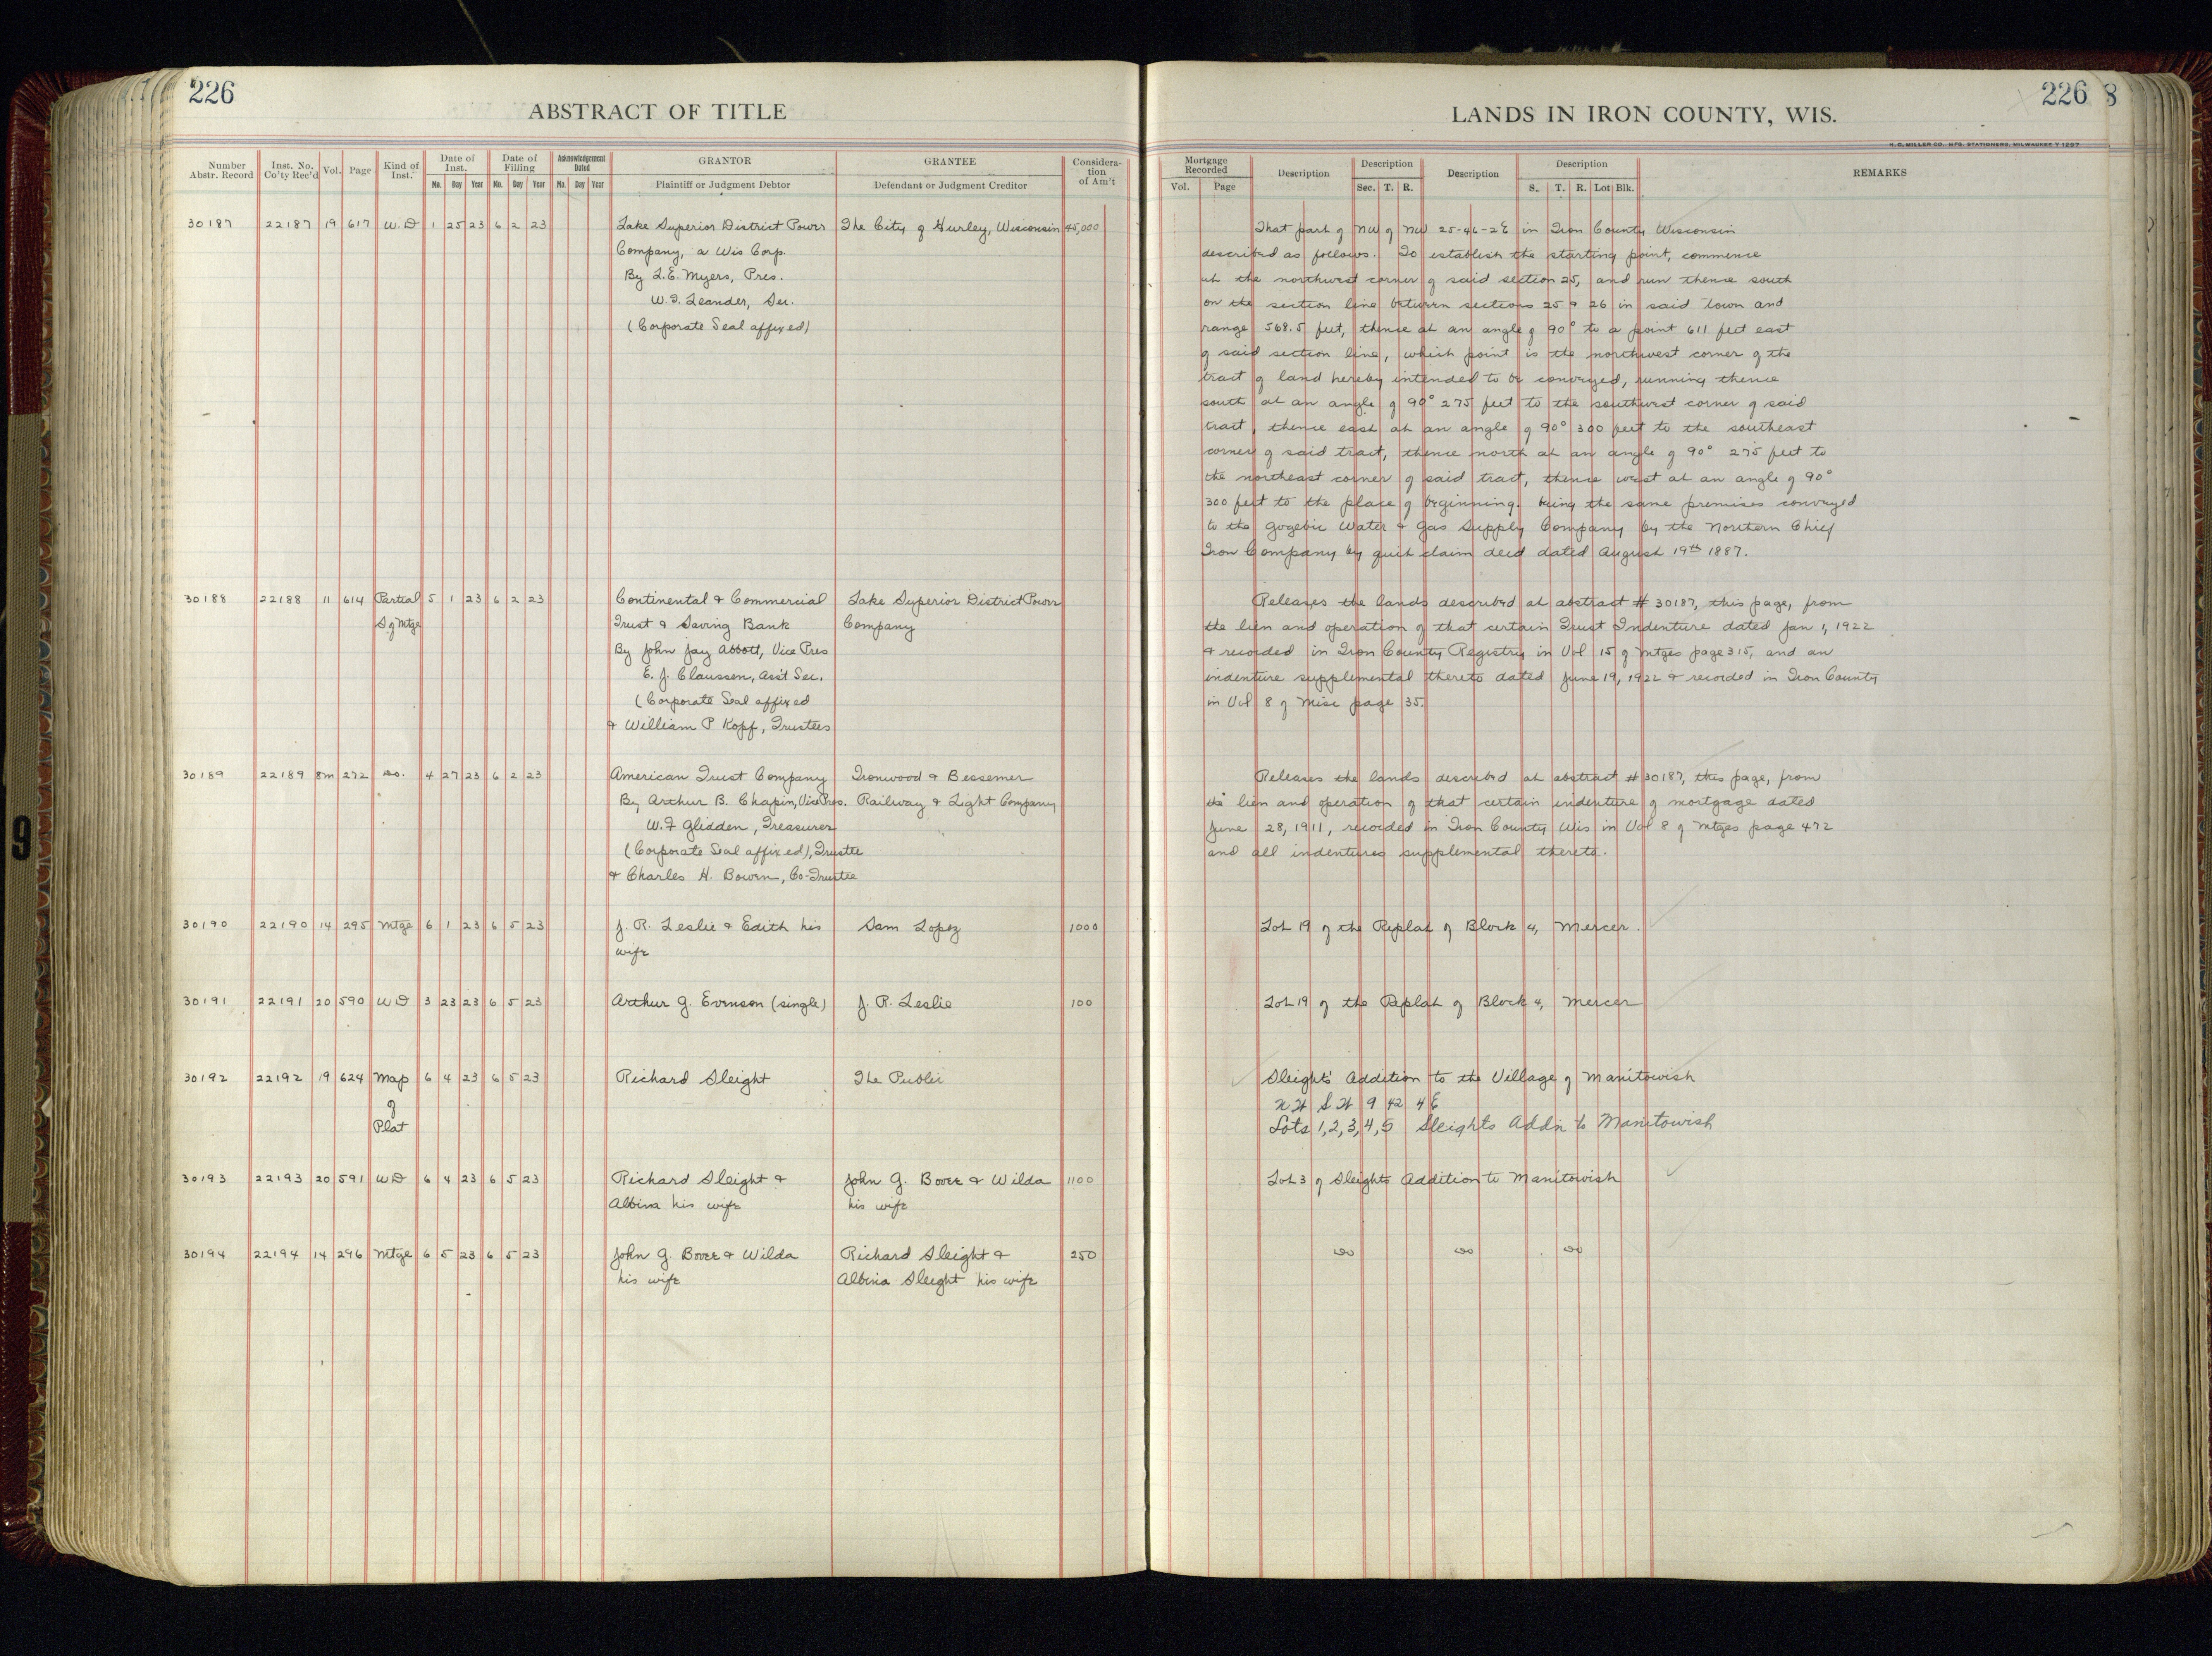 226
ABSTRACT OF TITLE
Number Abstr. Record | Inst. No. Co'ty Rec'd | Vol. | Page | Kind of Inst. | Date of Inst. Mo. Day Year | Date of Filling Mo. Day Year | Acknowledgement Dated Mo. Day Year | GRANTOR Plaintiff or Judgment Debtor | GRANTEE Defendant or Judgment Creditor | Considera-tion of Am't
30187 22187 19 617 W.D 1 25 23 6 2 23 Lake Superior District Power The City of Hurley, Wisconsin 45,000
Company, a Wis Corp.
By L.E. Myers, Pres.
W.G. Leander, Sec.
(Corporate Seal affixed)
30188 22188 11 614 Partial 5 1 23 6 2 23 Continental & Commercial Lake Superior District Power
S of Mtge Trust & Saving Bank Company
By John Jay Abbott, Vice Pres
E. J. Claussen, Ass't Sec.
(Corporate Seal affixed
& William P Kopf, Trustees
30189 22189 8m 272 Do. 4 27 23 6 2 23 American Trust Company Ironwood & Bessemer
By Arthur B. Chapin, Vice Pres. Railway & Light Company
W.F Glidden, Treasurer
(Corporate Seal affixed), Trustee
& Charles H. Bowen, Co-Trustee
30190 22190 14 295 Mtge 6 1 23 6 5 23 J. R. Leslie & Edith his Sam Lopez 1000
wife
30191 22191 20 590 WD 3 23 23 6 5 23 Arthur G. Evenson (single) J. R. Leslie 100
30192 22192 19 624 Map 6 4 23 6 5 23 Richard Sleight The Public
of
Plat
30193 22193 20 591 WD 6 4 23 6 5 23 Richard Sleight & John G. Bover & Wilda 1100
Albina his wife his wife
30194 22194 14 296 Mtge 6 5 23 6 5 23 John G. Bover & Wilda Richard Sleight & 250
his wife Albina Sleight his wife
226 8
LANDS IN IRON COUNTY, WIS.
H. C. MILLER CO. MFG. STATIONERS, MILWAUKEE
Mortgage Recorded Vol. Page | Description | Description Sec. T. R. | Description | Description S. T. R. Lot Blk. | REMARKS
That part of NW of NW 25-46-2E in Iron County Wisconsin
described as follows. To establish the starting point, commence
at the northwest corner of said section 25, and run thence south
on the section line between sections 25 & 26 in said town and
range 568.5 feet, thence at an angle of 90° to a point 611 feet east
of said section line, which point is the northwest corner of the
tract of land hereby intended to be conveyed, running thence
south at an angle of 90° 275 feet to the southwest corner of said
tract, thence east at an angle of 90° 300 feet to the southeast
corner of said tract, thence north at an angle of 90° 275 feet to
the northeast corner of said tract, thence west at an angle of 90°
300 feet to the place of beginning. being the same premises conveyed
to the Gogebic Water & Gas Supply Company by the Northern Chief
Iron Company by quit claim deed dated August 19th 1887.
Releases the lands described at abstract # 30187, this page, from
the lien and operation of that certain Trust Indenture dated Jan 1, 1922
& recorded in Iron County Registry in Vol 15 of Mtges page 315, and an
indenture supplemental thereto dated June 19, 1922 & recorded in Iron County
in Vol 8 of Misc page 35.
Releases the lands described at abstract # 30187, this page, from
the lien and operation of that certain indenture of mortgage dated
June 28, 1911, recorded in Iron County Wis in Vol 8 of Mtges page 472
and all indentures supplemental thereto.
Lot 19 of the Replat of Block 4, Mercer.
Lot 19 of the Replat of Block 4, Mercer
Sleight's Addition to the Village of Manitowish
NW SW 9 42 4E
Lots 1,2,3,4,5 Sleights Addn to Manitowish
Lot 3 of Sleights Addition to Manitowish
Do Do Do
9